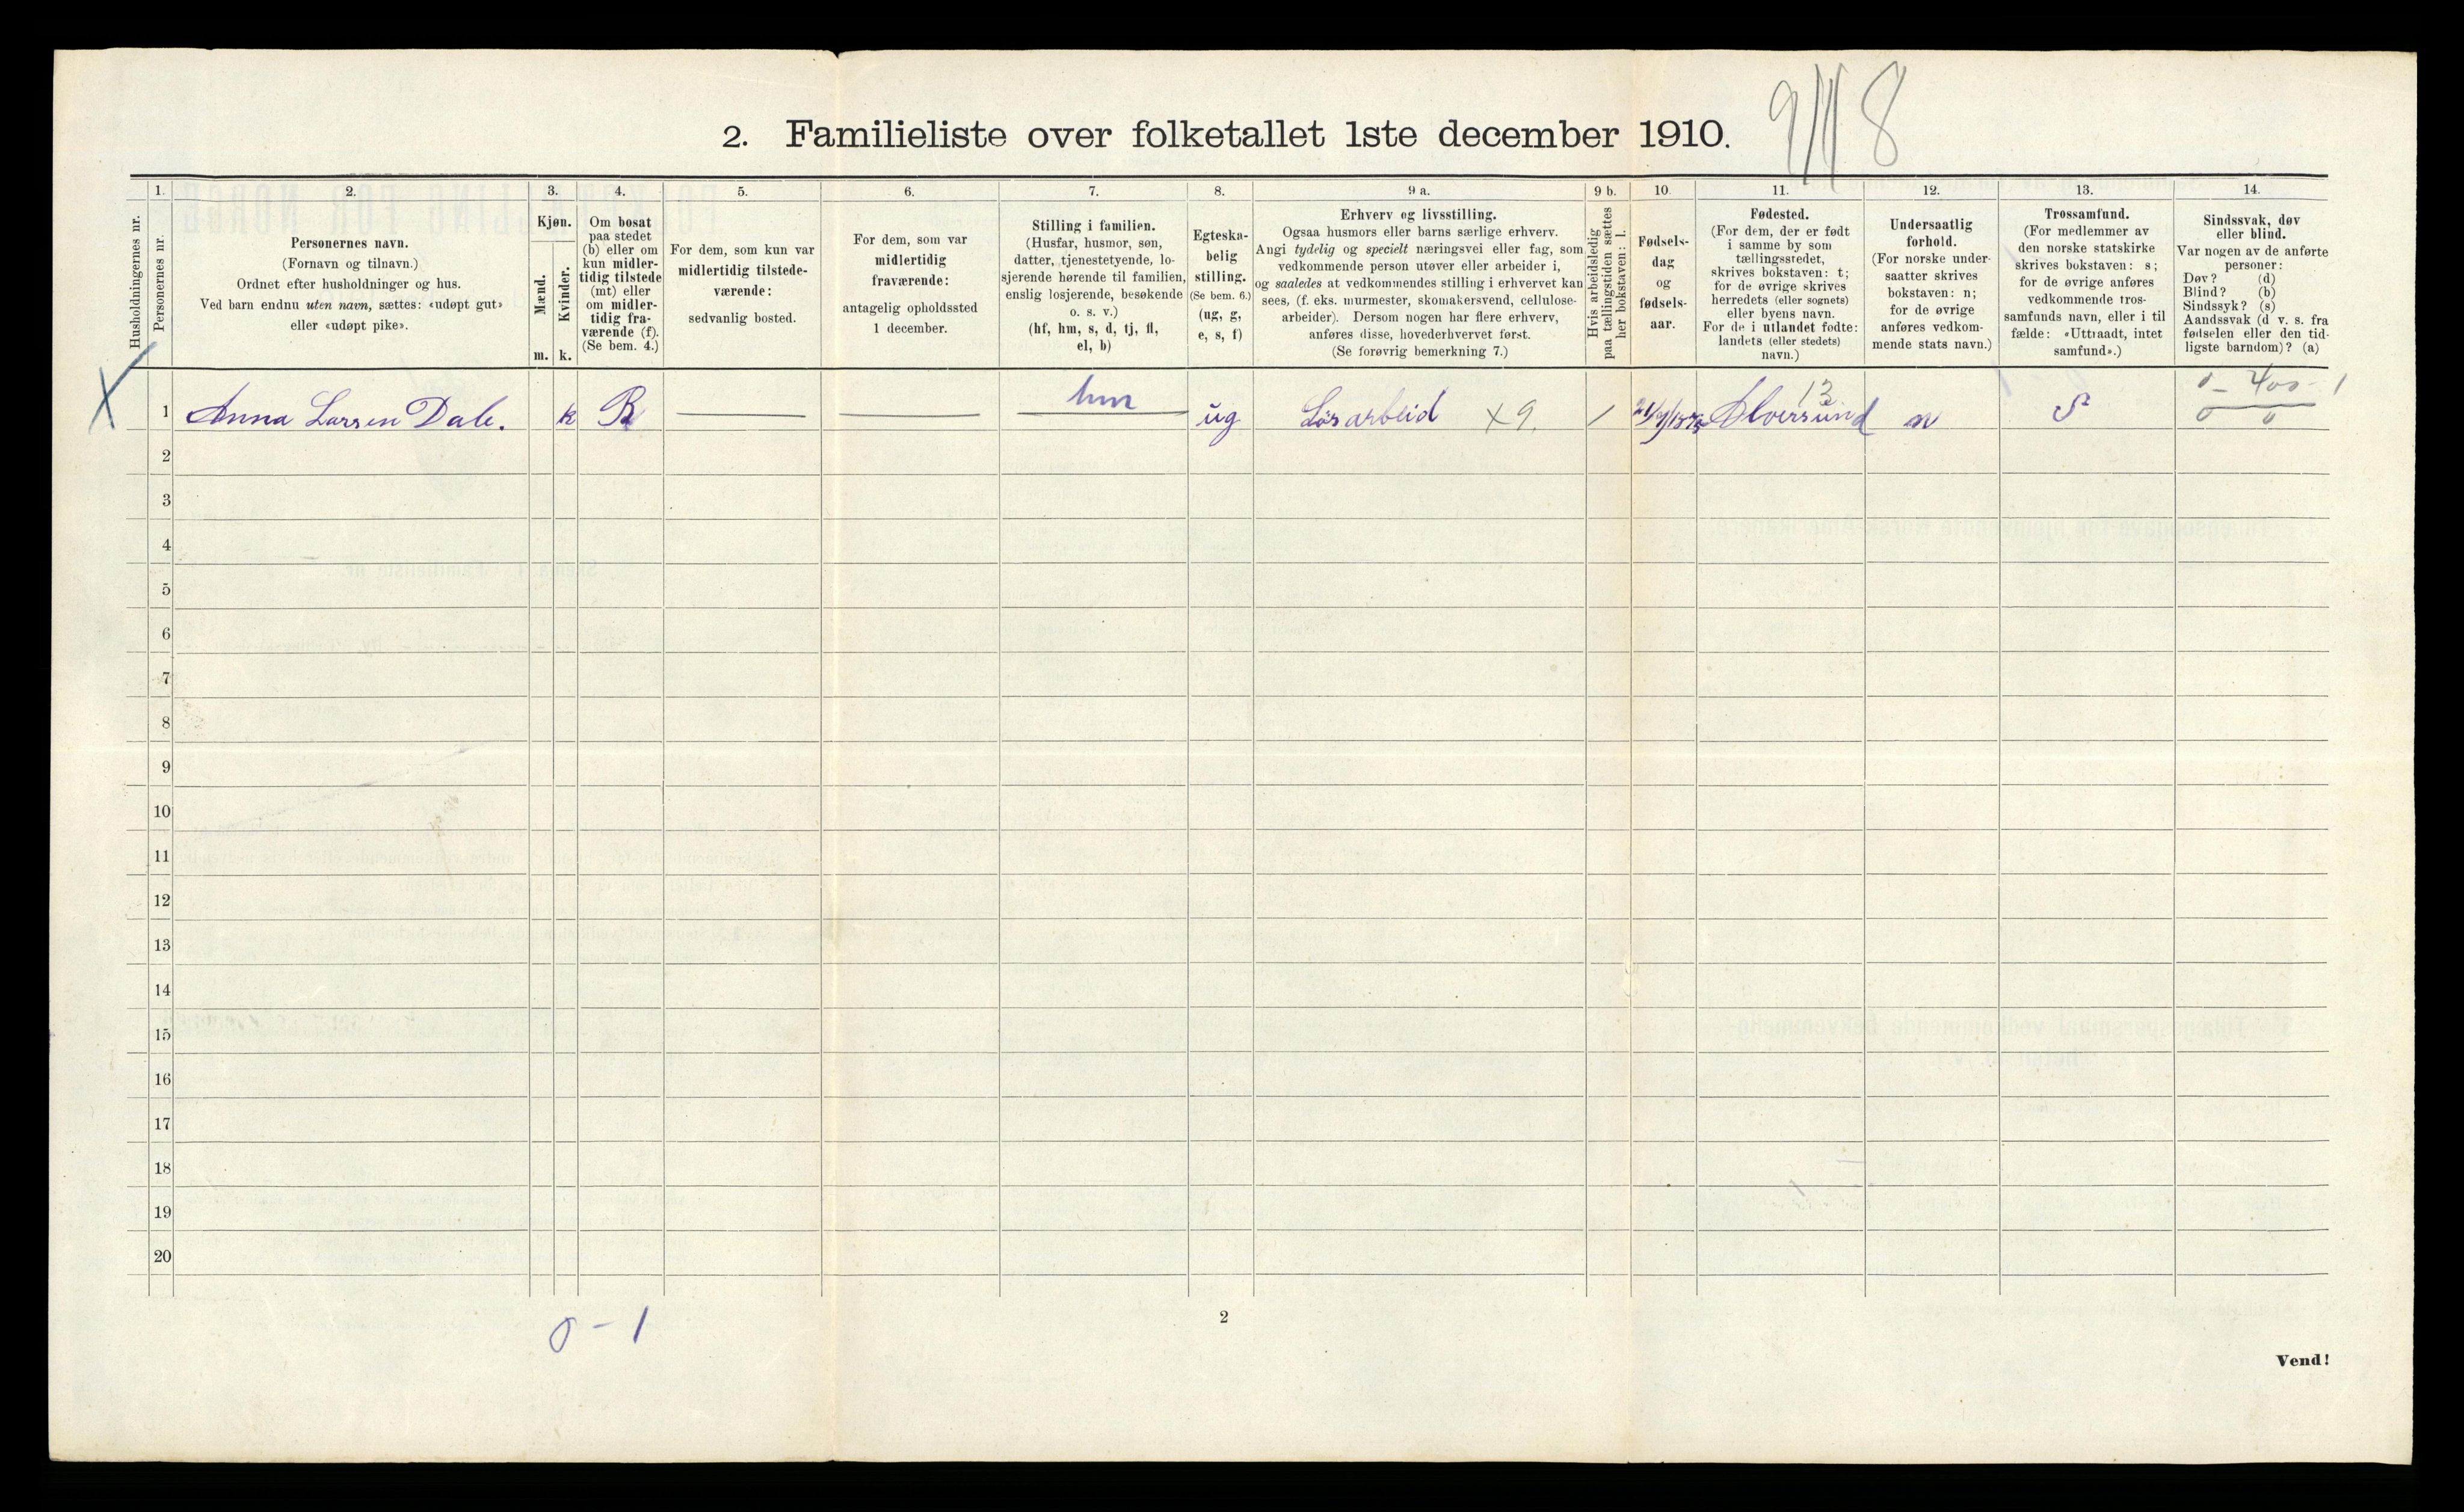 2. Familieliste over folketallet 1ste december 1910.
1. 2. 3. 4. 5. 6. 7. 8. 9 a. 9 b. 10. 11. 12. 13. 14.
Husholdningernes nr.
Personernes nr.
Personernes navn.
(Fornavn og tilnavn.)
Ordnet efter husholdninger og hus.
Ved barn endnu uten navn, sættes: «udøpt gut»
eller «udøpt pike».
Kjøn.
Mænd.
m.
Kvinder.
k.
Om bosat
paa stedet
(b) eller om
kun midler-
tidig tilstede
(mt) eller
om midler-
tidig fra-
værende (f).
(Se bem. 4.)
For dem, som kun var
midlertidig tilstede-
værende:
sedvanlig bosted.
For dem, som var
midlertidig
fraværende:
antagelig opholdssted
1 december.
Stilling i familien.
(Husfar, husmor, søn,
datter, tjenestetyende, lo-
sjerende hørende til familien,
enslig losjerende, besøkende
o. s. v.)
(hf, hm, s, d, tj, fl,
el, b)
Egteska-
belig
stilling.
(Se bem. 6.)
(ug, g,
e, s, f)
Erhverv og livsstilling.
Ogsaa husmors eller barns særlige erhverv.
Angi tydelig og specielt næringsvei eller fag, som
vedkommende person utøver eller arbeider i,
og saaledes at vedkommendes stilling i erhvervet kan
sees, (f. eks. murmester, skomakersvend, cellulose-
arbeider). Dersom nogen har flere erhverv,
anføres disse, hovederhvervet først.
(Se forøvrig bemerkning 7.)
Hvis arbeidsledig
paa tællingstiden sættes
her bokstaven: l.
Fødsels-
dag
og
fødsels-
aar.
Fødested.
(For dem, der er født
i samme by som
tællingsstedet,
skrives bokstaven: t;
for de øvrige skrives
herredets (eller sognets)
eller byens navn.
For de i utlandet fødte:
landets (eller stedets)
navn.)
Undersaatlig
forhold.
(For norske under-
saatter skrives
bokstaven: n;
for de øvrige
anføres vedkom-
mende stats navn.)
Trossamfund.
(For medlemmer av
den norske statskirke
skrives bokstaven: s;
for de øvrige anføres
vedkommende tros-
samfunds navn, eller i til
fælde: «Uttraadt, intet
samfund».)
Sindssvak, døv
eller blind.
Var nogen av de anførte
personer:
Døv? (d)
Blind? (b)
Sindssyk? (s)
Aandssvak (d v. s. fra
fødselen eller den tid-
ligste barndom)? (a)
X
hm 13 0 - 400 - 1
1 Anna Larsen Dale. k B ug Løsarbeid X9. Alversund n S 0 0
2
3
4
5
6
7
8
9
10
11
12
13
14
15
16
17
18
19
20
0 - 1
2
Vend!